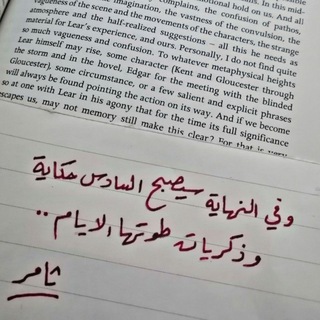 vagueness of the scene and the movements of the characters, the strange
atmosphere and the half-realized suggestions – all this he needs as
material for Lear's experience, and ours. Personally, I do not find quite
so much vagueness and confusion. To whatever metaphysical heights
Lear himself may rise, some character (Kent and Gloucester through
the storm and in the hovel, Edgar for the meeting with the blinded
Gloucester), some circumstance, or a few salient and explicit phrases
will always be found pointing the action on its way. And if we become
so at one with Lear in his agony that for the time its full significance
escapes us, may not memory still make this clear? For that is very
وفي النهاية سيصبح السادس حكاية
وذكريات طوتها الايام ..
ثامر